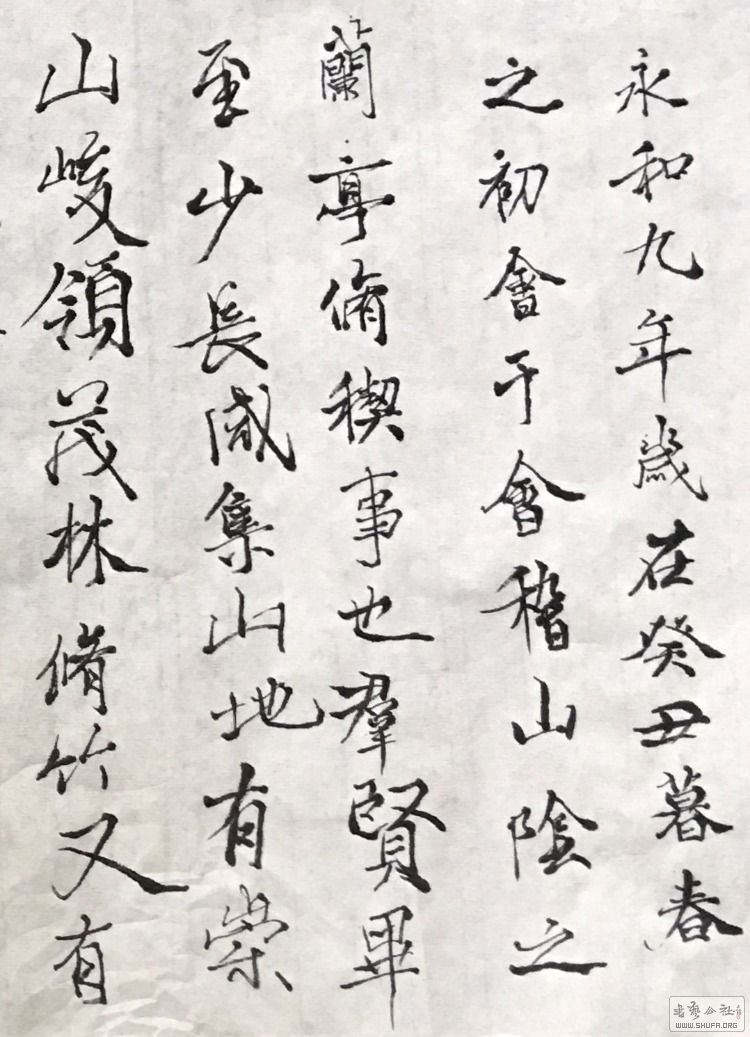 永和九年歲在癸丑暮春
之初會于會稽山陰之
蘭亭脩稧事也羣賢畢
至少長咸集山地有崇
山峻領茂林脩竹又有
书艺公社
WWW.SHUFA.ORG